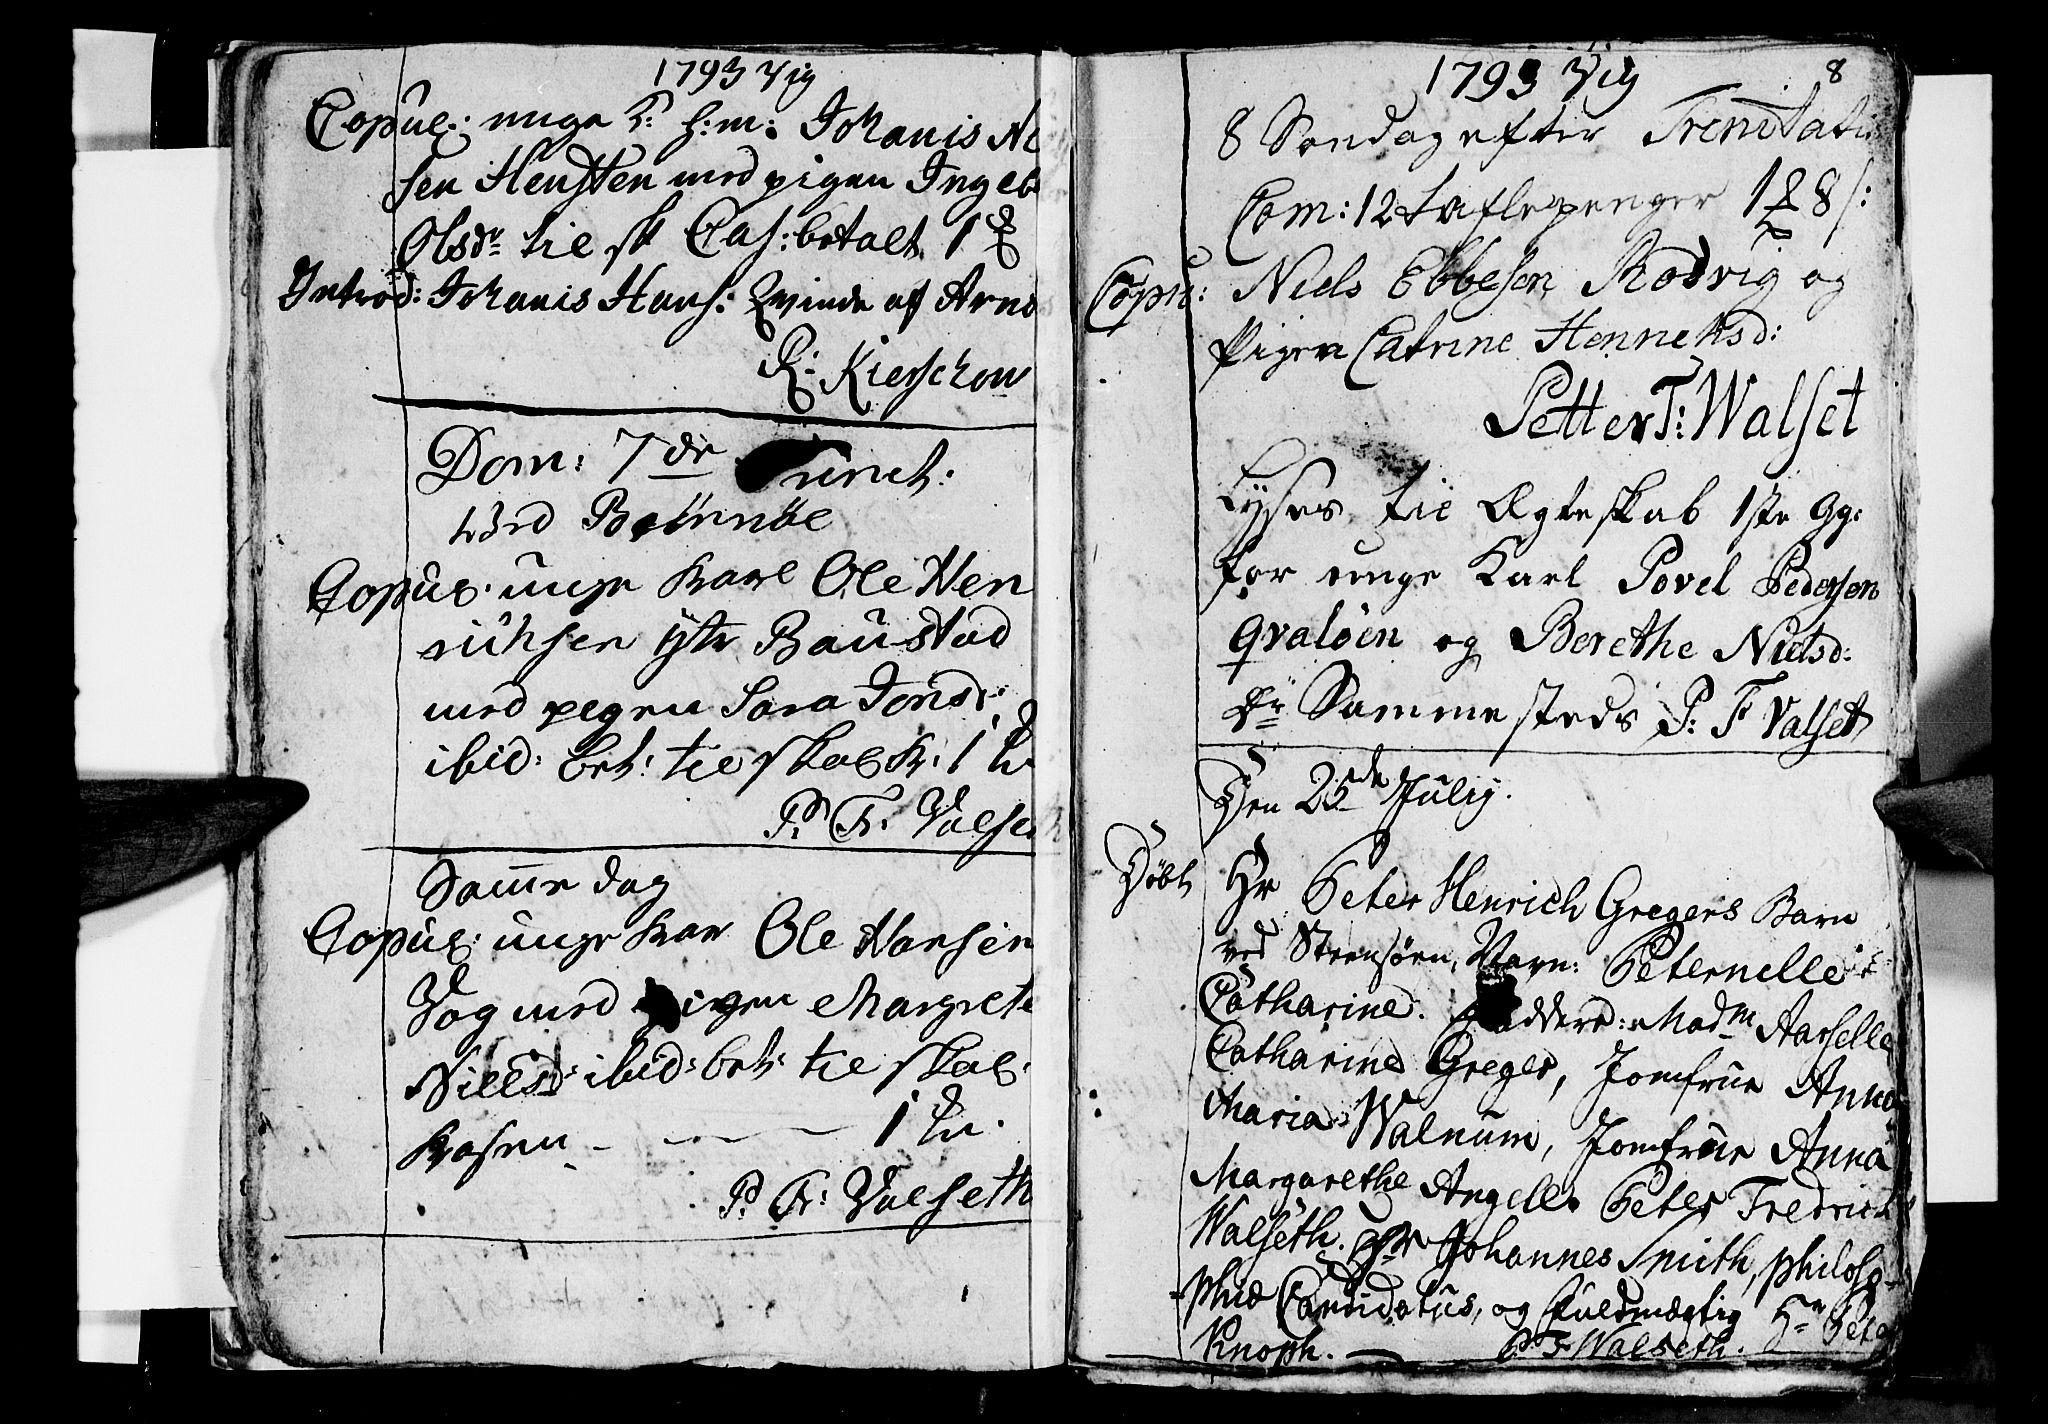 1793 Vig
Copul: unge K: h:m: Johanis Ni
sen Hensten med pigen Ingeb
Olsdr til sk Cas: betalt 1
Introd: Johanis Hans: Qvinde af Arnø
R: Kierschow
Dom: 7de Trinet:
ved Brönnöe
Copul. unge karl Ole Hen
richsen ystr Baustad
med pigen Sara Jonsd:
ibid: bet: til skolek: 1
P. Fr. Valse
Samme dag
Copul: unge kar Ole Hansen
Vog med pigen Margrete
Nielsd: ibid: bet: til skole
kasen - 1
P. Fr: Valseth
1793 Vig 8
8 Søndag efter Trenitatis
Com: 12 Taflepenger 1 8 s:
Copu: Niels Ebbesen Rodvig og
Pigen Catrine Henneksd:
Petter F: Walset
Lyses til Ægteskab 1ste Gg:
for unge Karl Povel Pedersen
Qvaløen og Berethe Nielsd:
Sammesteds P: F Valset
Den 25de Julij.
Døbt Hr Peter Henrich Gregers Barn
ved Steensøen, Navn: Peternelle
Catharine. Faddere: Madm Aarselle
Catharine Greger, Jomfrue Anna
Maria Walnum, Jomfrue Anna
Margarethe Angell. Peter Fredrich
Walseth. Hr Johannes Smith, philoso-
phiæ Candidatus, og Fuldmægtig Hr Pete
Knoph. P F Walseth.